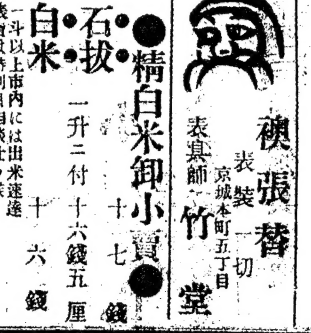 襖張替
表装一切
京城本町五丁目
表具師 竹堂
●精白米卸小賣●
石拔 十七錢
一升ニ付十六錢五厘
白米 十六錢
一斗以上市内には出米速達